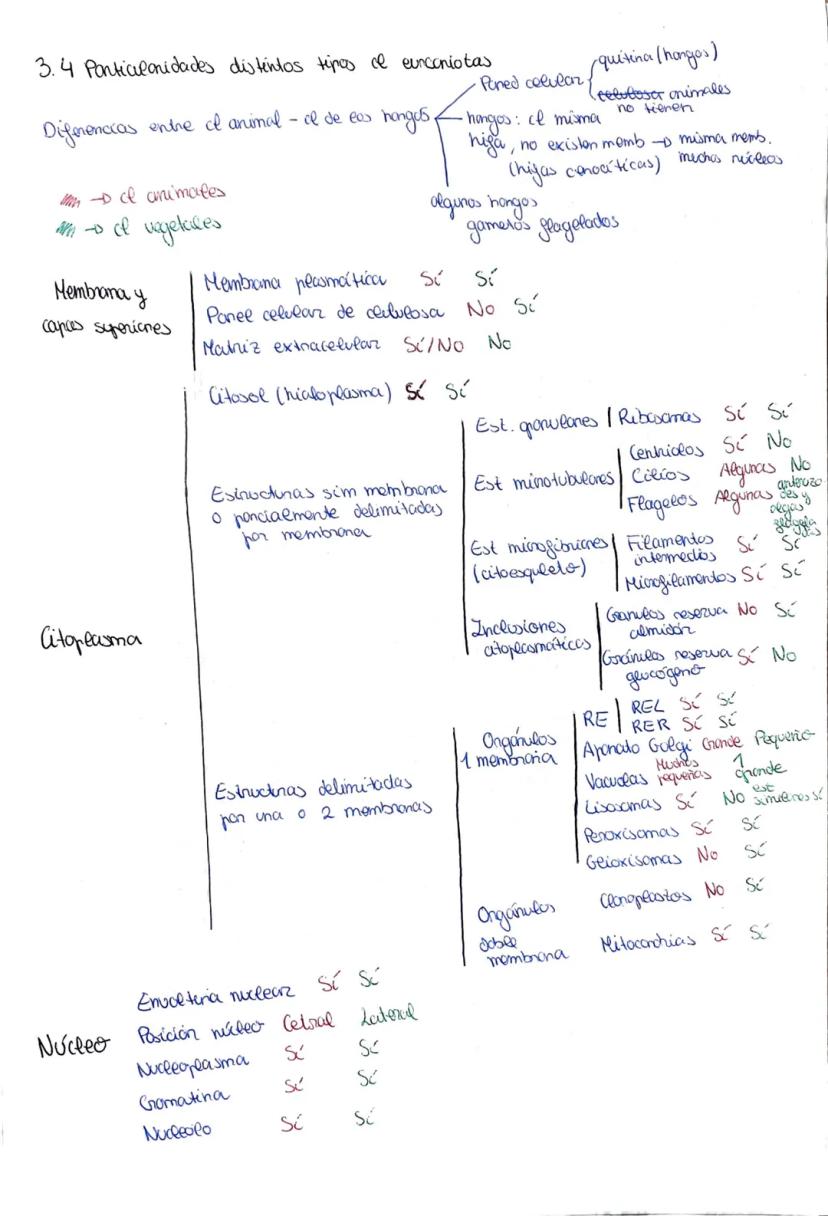 3.4 Particularidades distintos tipos cl eucariotas
Diferencias entre cl animal - cl de los hongos
Pared celular
quitina (hongos)
celulosa animales
no tienen
hongos: cl misma
hifa, no existen memb → misma memb.
(hifas cenocíticas) muchos núcleos
algunos hongos
gametos flagelados
→ cl animales
→ cl vegetales
Membrana y
capas superiores
Membrana plasmática Sí Sí
Pared celular de celulosa No Sí
Matriz extracelular Sí/No No
Citoplasma
Citosol (hialoplasma) Sí Sí
Estructuras sim membrana
o parcialmente delimitadas
por membrana
Est. granulares Ribosomas Sí Sí
Est mirotubulares
Centriolos Sí No
Cilios Algunas No
Flagelos Algunas anterozo
des y
algas
Est microfibrilares
(citoesqueleto)
Filamentos Sí Sí
intermedios
Microfilamentos Sí Sí
Inclusiones
citoplasmáticas
Gránulos reserva No Sí
almidón
Gránulos reserva Sí No
glucógeno
Estructuras delimitadas
por una o 2 membranas
Orgánulos
1 membrana
RE
REL Sí Sí
RER Sí Sí
Aparato Golgi Grande Pequeño
Vacuolas Muchas pequeñas 1 grande
Lisosomas Sí No est similares sí
Peroxisomas Sí Sí
Glioxisomas No Sí
Orgánulos
doble
membrana
Cloroplastos No Sí
Mitocondrias Sí Sí
Núcleo
Envoltura nuclear Sí Sí
Posición núcleo Cetral Lateral
Nucleoplasma Sí Sí
Cromatina Sí Sí
Nucleolo Sí Sí